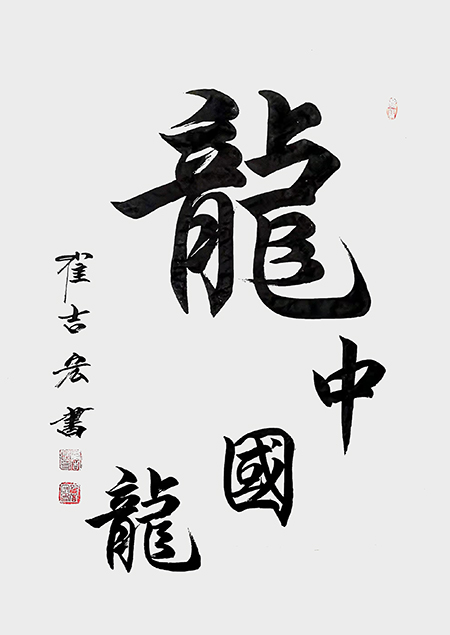 龍
中
國
龍
崔吉宏書